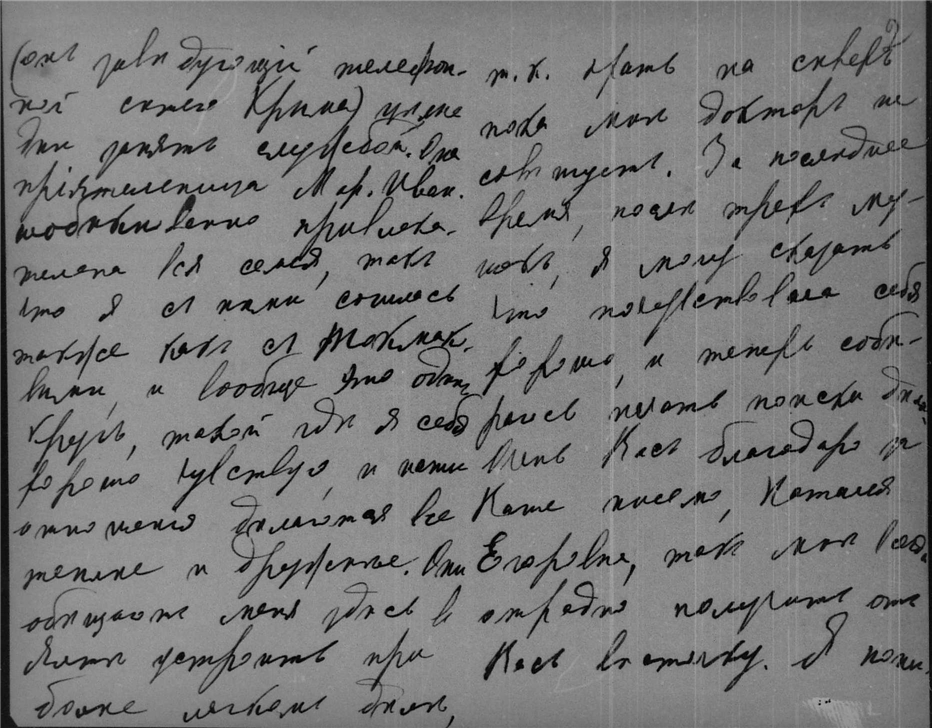 (онъ завѣдующій телефон-
ной сѣтью Крыма) цѣлые
дни занятъ службой. Она
пріятельница Мар. Иван.
необыкновенно привлека-
тельна вся семья, такъ
что я съ ними сошлась
также какъ съ Токмак.
выми, и вообще это одинъ
кругъ, такой гдѣ я себя
хорошо чувствую, и наши
отношенія дѣлаются все
теплѣе и дружнѣе. Они
обѣщаютъ меня здѣсь въ
Ялтѣ устроить при
болѣе легкомъ дѣлѣ,
т. к. ѣхать на сѣверъ
пока мнѣ докторъ не
совѣтуетъ. За послѣднее
время, послѣ трехъ му-
, я могу сказать
что почувствовала себя
хорошо, и теперь соби-
раюсь начать поиски дѣла.
Очень Васъ благодарю за
Ваше письмо, Наталья
Егоровна, такъ мнѣ всегда
отрадно получить отъ
Васъ вѣсточку. Я